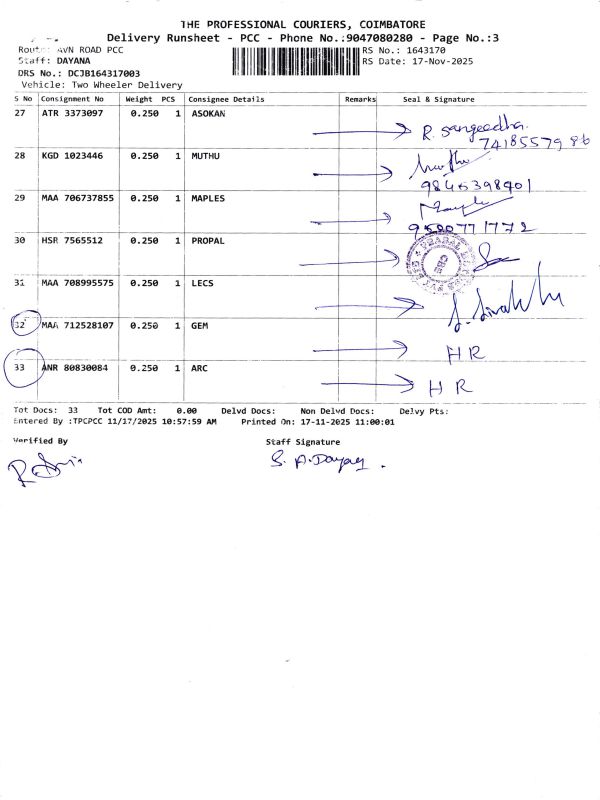 THE PROFESSIONAL COURIERS, COIMBATORE
Delivery Runsheet - PCC - Phone No.:9047080280 - Page No.:3
Route: AVN ROAD PCC
RS No.: 1643170
Staff: DAYANA
RS Date: 17-Nov-2025
DRS No.: DCJB164317003
Vehicle: Two Wheeler Delivery
S No Consignment No Weight PCS Consignee Details Remarks Seal & Signature
27 ATR 3373097 0.250 1 ASOKAN
R. Sangeedha.
7418557986
28 KGD 1023446 0.250 1 MUTHU
9845398901
29 MAA 706737855 0.250 1 MAPLES
9500771772
30 HSR 7565512 0.250 1 PROPAL
31 MAA 708995575 0.250 1 LECS
32 MAA 712528107 0.250 1 GEM
HR
33 ANR 80830084 0.250 1 ARC
HR
Tot Docs: 33 Tot COD Amt: 0.00 Delvd Docs: Non Delvd Docs: Delvy Pts:
Entered By :TPCPCC 11/17/2025 10:57:59 AM Printed On: 17-11-2025 11:00:01
Verified By Staff Signature
S. A. Dayany.